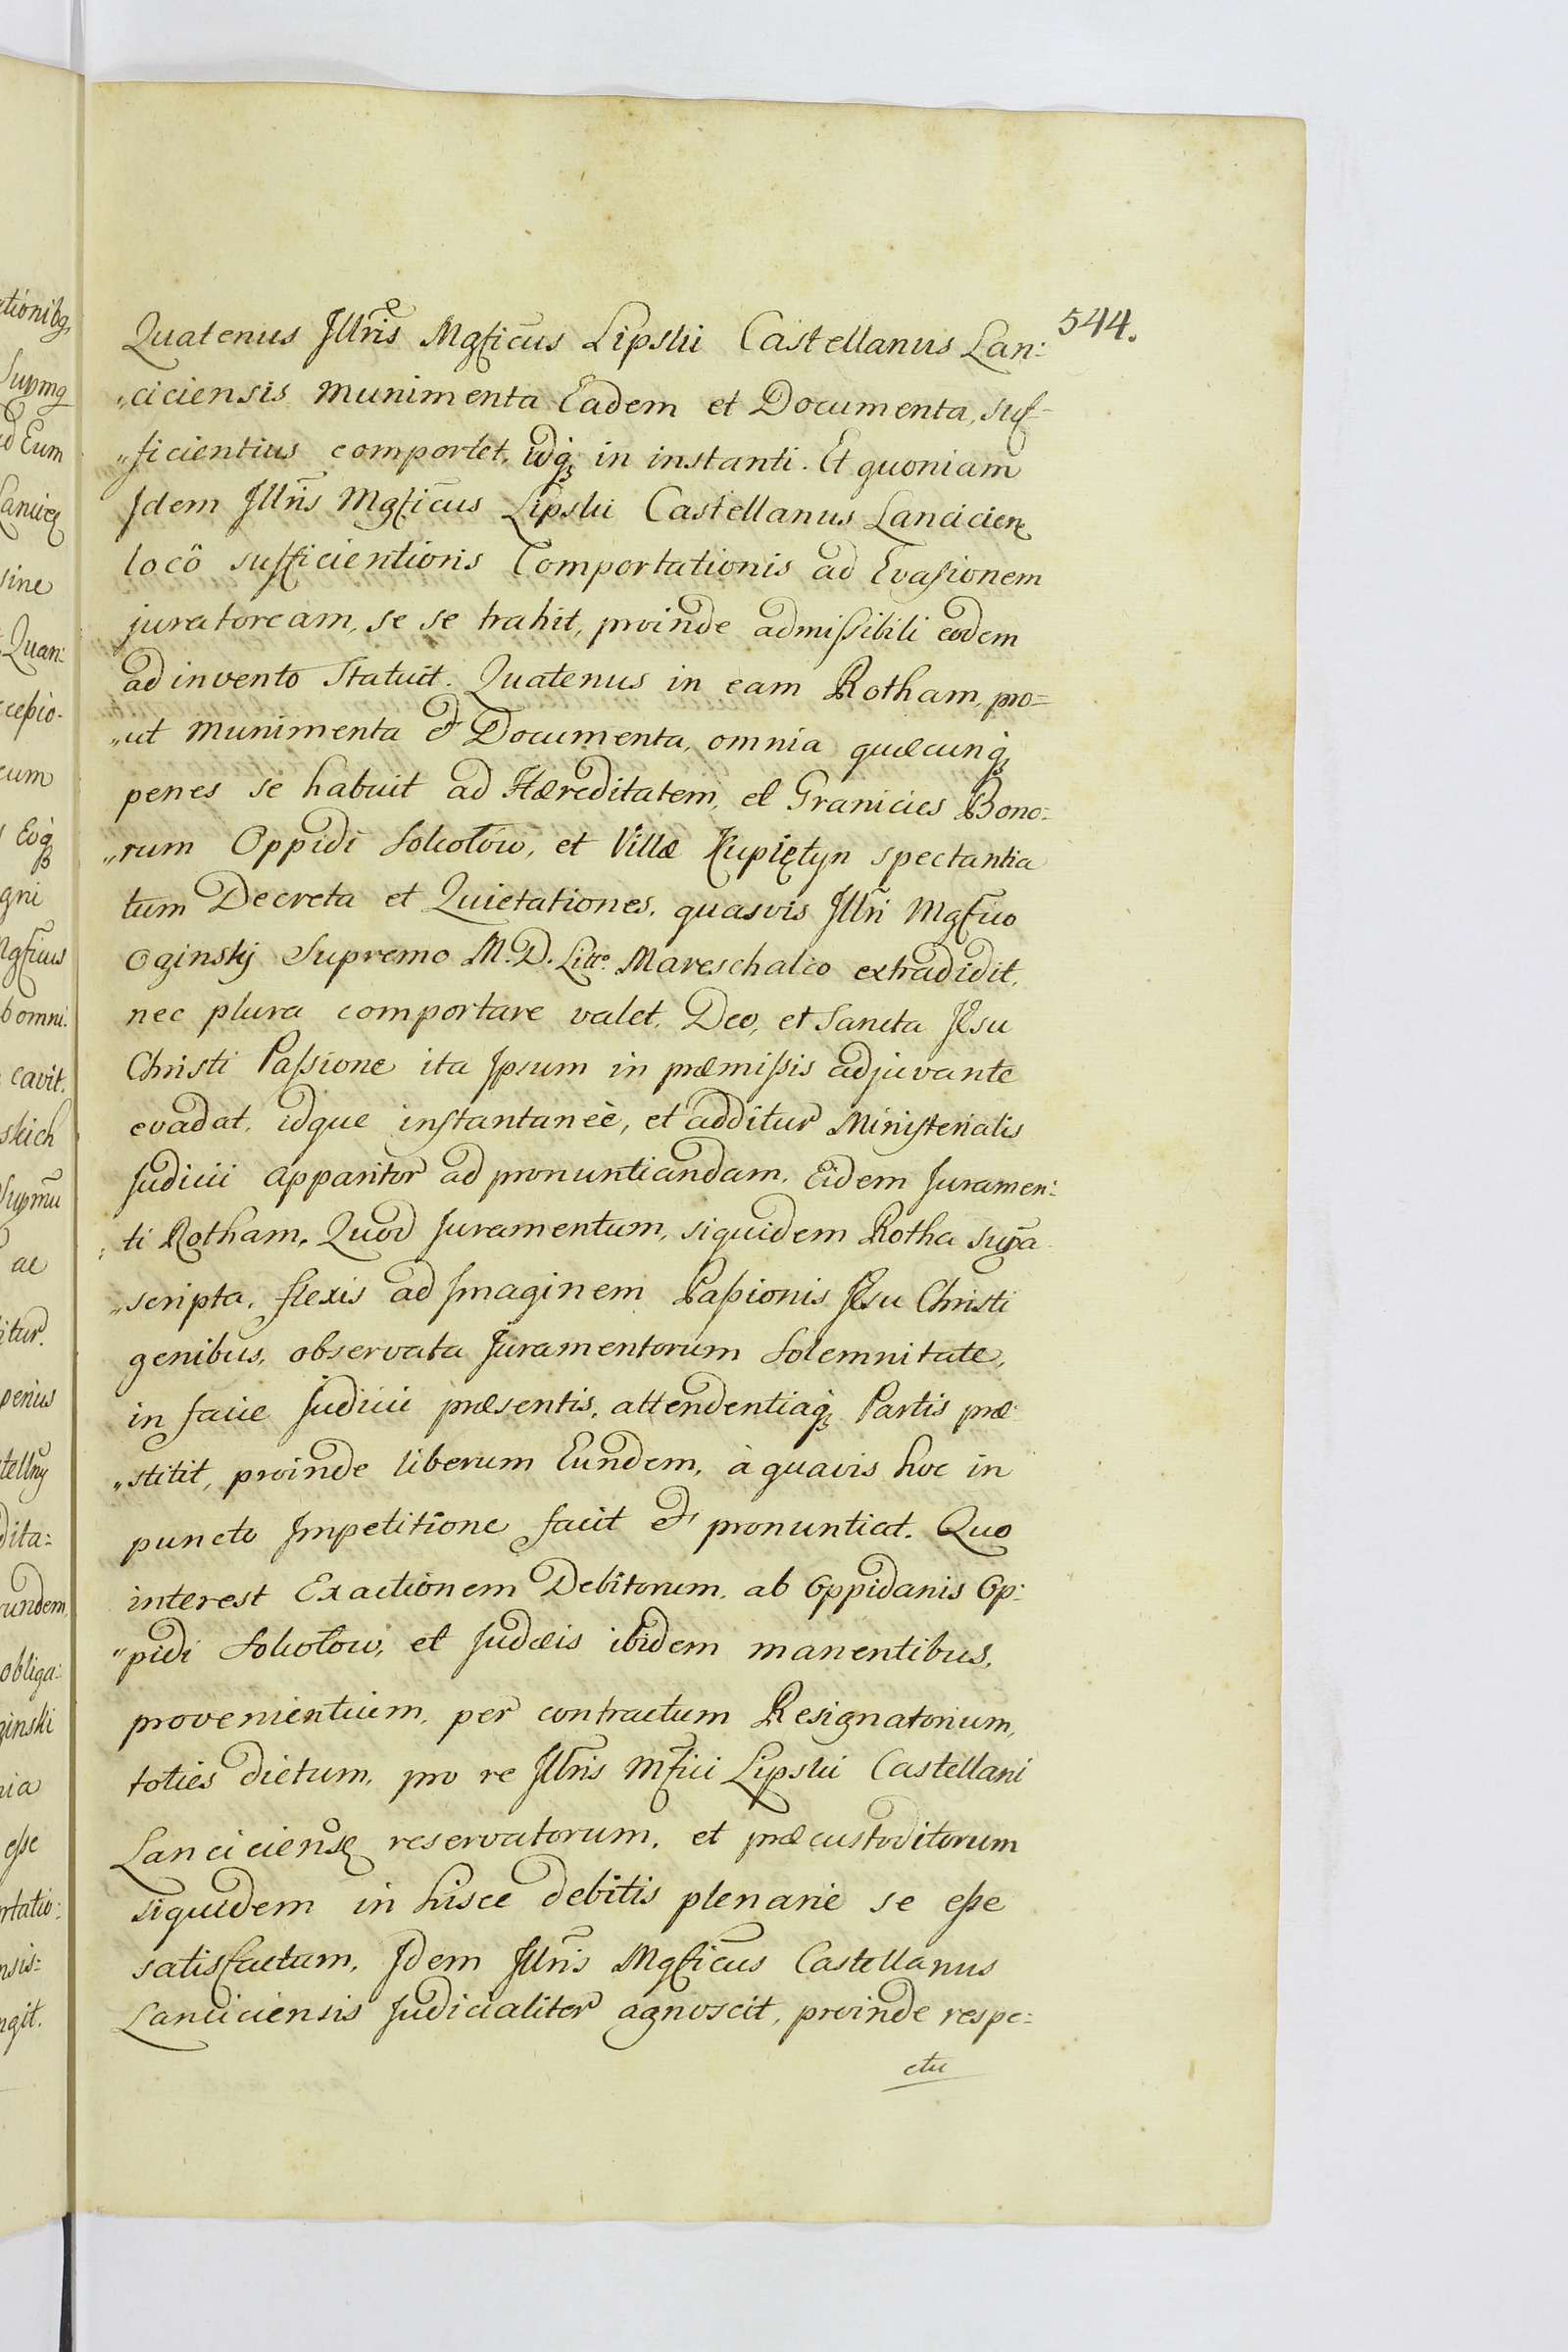 544.
Quatenus Jllris Mgficus Lipski Castellanus Lan:
„ciciensis munimenta Eadem et Documenta, suf-
„ficientius comportet, idq; in instanti. Et quoniam
Jdem Jllris Mgficus Lipski Castellanus Lancicien̄
locô sufficientioris Comportationis ad Evasionem
juratoream, se se trahit, proinde admissibili eodem
adinvento Statuit. Quatenus in eam Rotham, pro=
„ut munimenta et Documenta, omnia quæcunq;
penes se habuit ad Hæreditatem, et Granicies Bono:
„rum Oppidi Sokołów, et Villæ Kupiętyn spectantia
tum Decreta et Quietationes, quasvis Jllri Mgfico
Oginskij Supremo M. D. Litt. Mareschalco extradidit,
nec plura comportare valet, Deo, et Sancta Jesu
Christi Passione ita Jpsum in præmissis adjuvante
evadat, idque instantaneè, et additur Ministerialis
Judicii Apparitor ad pronuntiandam, Eidem Juramen:
„ti Rotham, Quod Juramentum, siquidem Rotha supra
„scripta, flexis ad Jmaginem Passionis Jesu Christi
genibus, observata Juramentorum Solemnitate,
in facie Judicii præsentis, attendentiaq; Partis præ
„stitit, proinde liberum Eundem, à quavis hoc in
puncto Jmpetitione facit et pronuntiat. Quo
interest Exactionem Debitorum, ab Oppidanis Op:
„pidi Sokołow, et Judæis ibidem manentibus,
provenientium, per contractum Resignatorium,
toties dictum, pro re Jllris Mfici Lipski Castellani
Lanciciens̄ reservatorum, et præcustoditorum
siquidem in hisce debitis plenarie se esse
satisfactum, Jdem Jllris Mgficus Castellanus
Lanciciensis Judicialiter agnoscit, proinde respe:
ctu